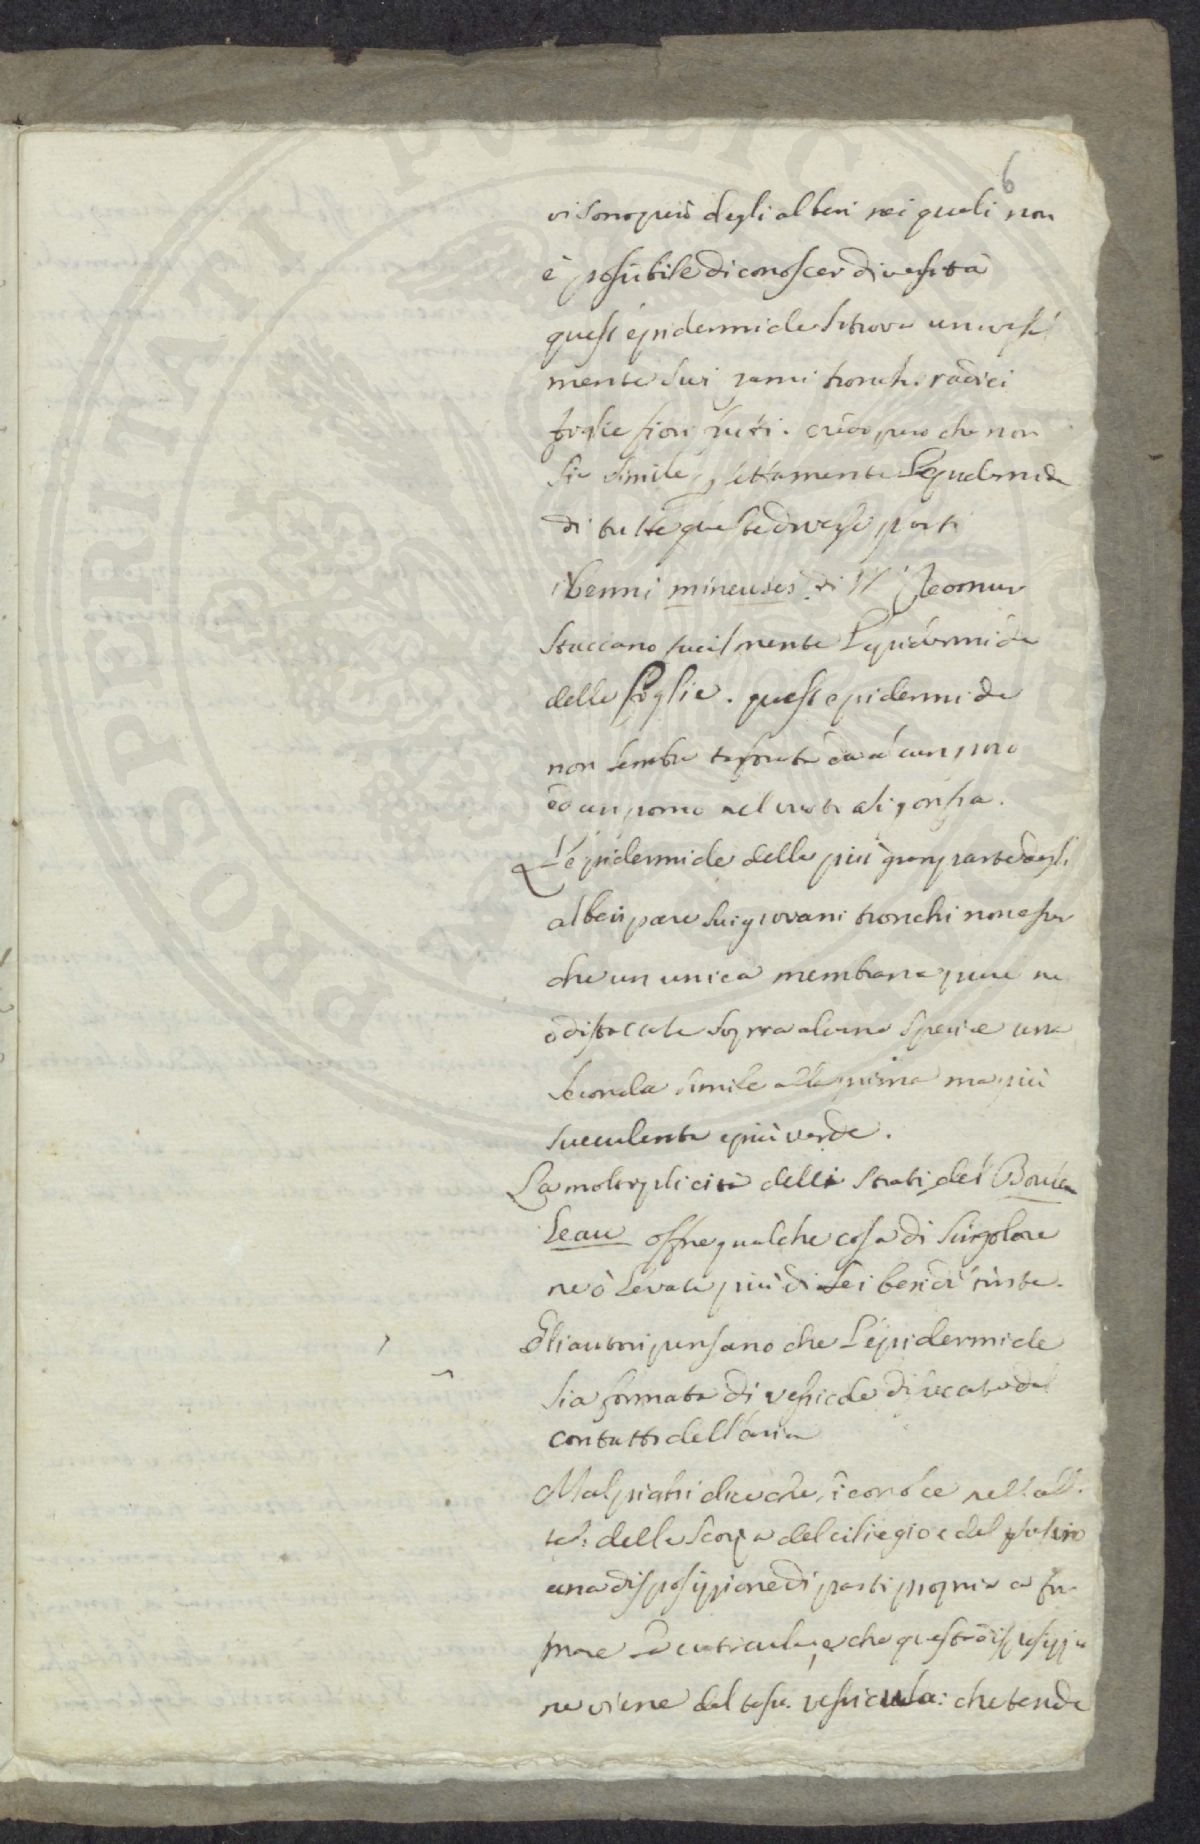 6
vi sono però degli alberi nei quali non
è possibile di conoscer diversità
quest epidermide si trova universal
mente sui rami tronchi radici
foglie fiori frutti. credo pero che non
sia simile lepidermide
di tutte queste diverse parti
i vermi mineuses di Mr Reomur
staccano facilmente l'epidermide
delle foglie. quest epidermide
non sembra
ed un pomo nel
L'epidermide della più gran parte degli
alberi pare sui giovani tronchi non esser
che un unica membrana pure ne
ò distaccate sopra alcune specie una
seconda simile alla prima ma più
succulenta e più verde.
La molteplicità delli strati del Boule
leau offre qualche cosa di singolare
ne ò levate più di sei ben distinte.
Gli autori pensano che l'epidermide
sia formata di vessicole diseccate dal
contatto dell'aria
Malpighi dice che si conosce nell
della scorza del ciliegio e del susino
una disposizione di parti propria a for
mare la cuticula, e che questa disposizio
ne viene dal tess. vessicula: che tende